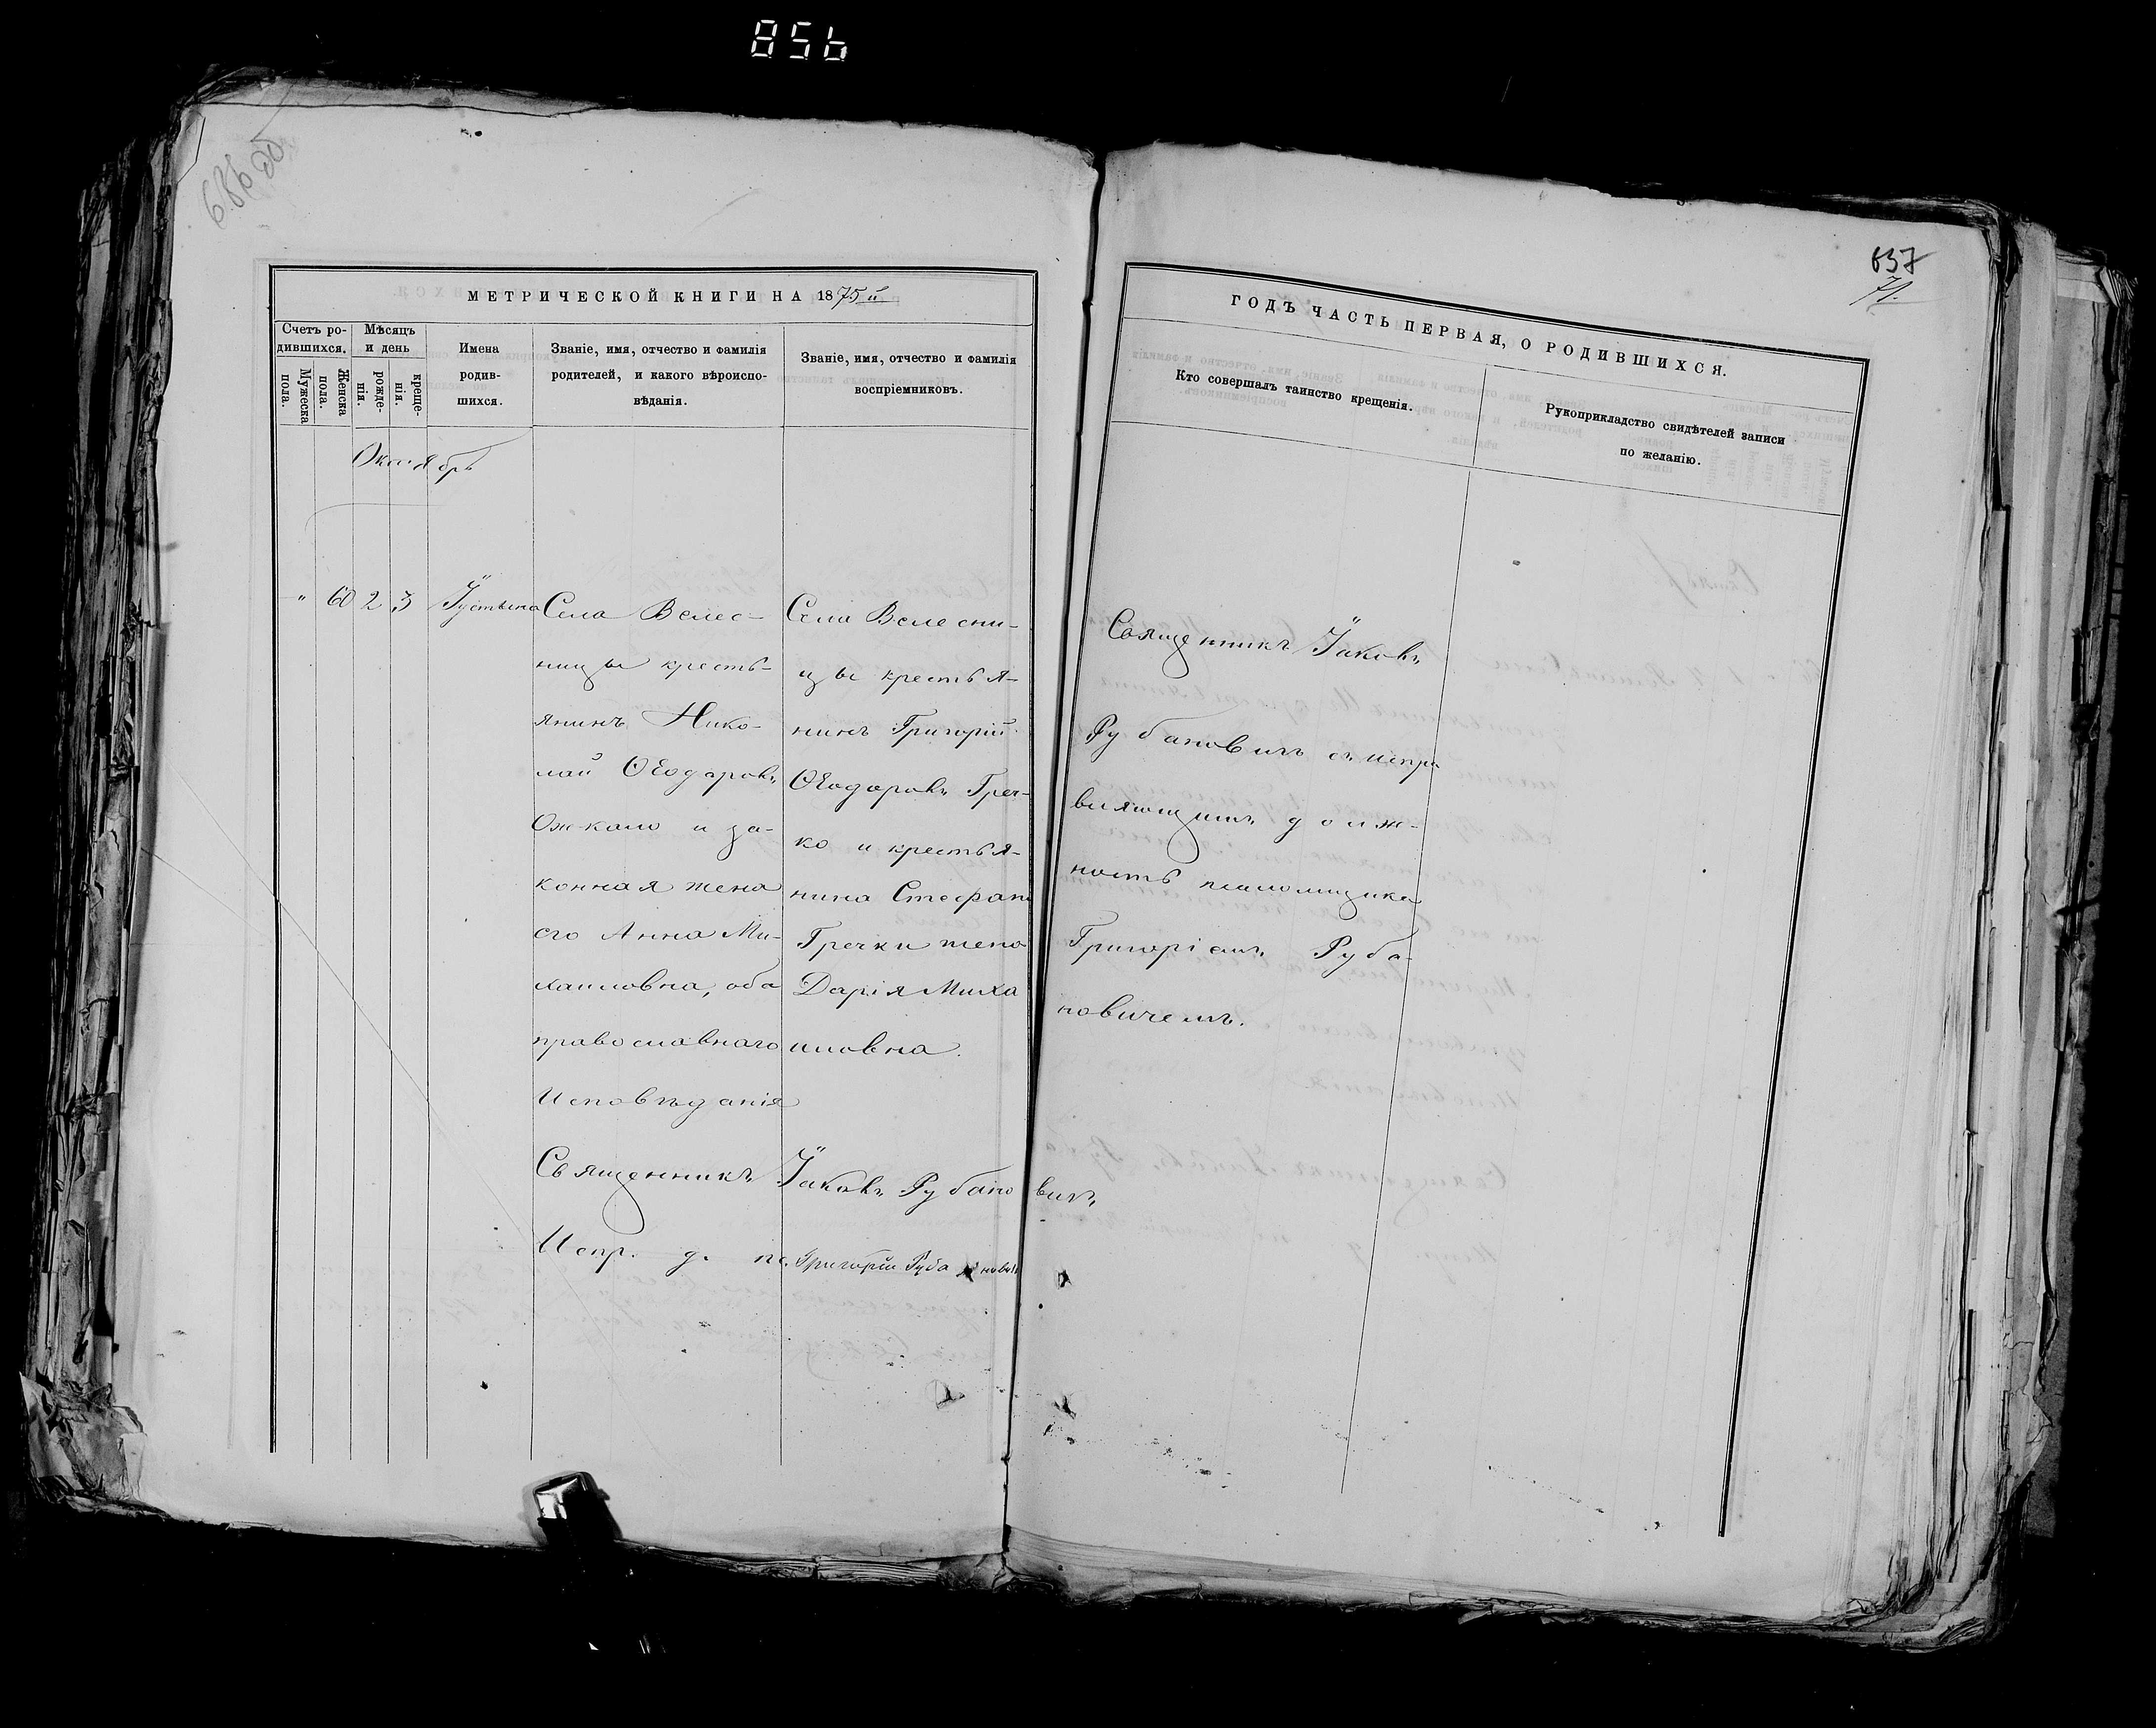 856
636 об
637
71.
МЕТРИЧЕСКОЙ КНИГИ НА 1875й
Счетъ ро-
дившихся.
Мужеска
пола.
Женска
пола.
Мѣсяцъ
и день
рожде-
нія.
креще-
нія.
Имена
родив-
шихся.
Званіе, имя, отчество и фамилія
родителей, и какого вѣроиспо-
вѣданія.
Званіе, имя, отчество и фамилія
воспріемниковъ.
Октябрь
" 60 2 3 Іустина
Села Велес-
ницы кресть-
янинъ Нико-
лай Ѳеодоровъ
и за-
конная жена
его Анна Ми-
хаиловна, оба
православнаго
исповѣданія
Села Велесни-
цы крестья-
нинъ Григорій
Ѳеодоровъ Греч-
ко и крестья-
нина Стефана
Гречки жена
Дарія Миха
иловна.
Священникъ Іаковъ Рубановичъ
Испр. д. пс. Григорій Рубановичъ
ГОДЪ ЧАСТЬ ПЕРВАЯ, О РОДИВШИХСЯ.
Кто совершалъ таинство крещенія.
Рукоприкладство свидѣтелей записи
по желанію.
Священникъ Іаковъ
Рубановичъ съ испра
вляющимъ долж-
ность псаломщика
Григоріемъ Руба-
новичемъ.